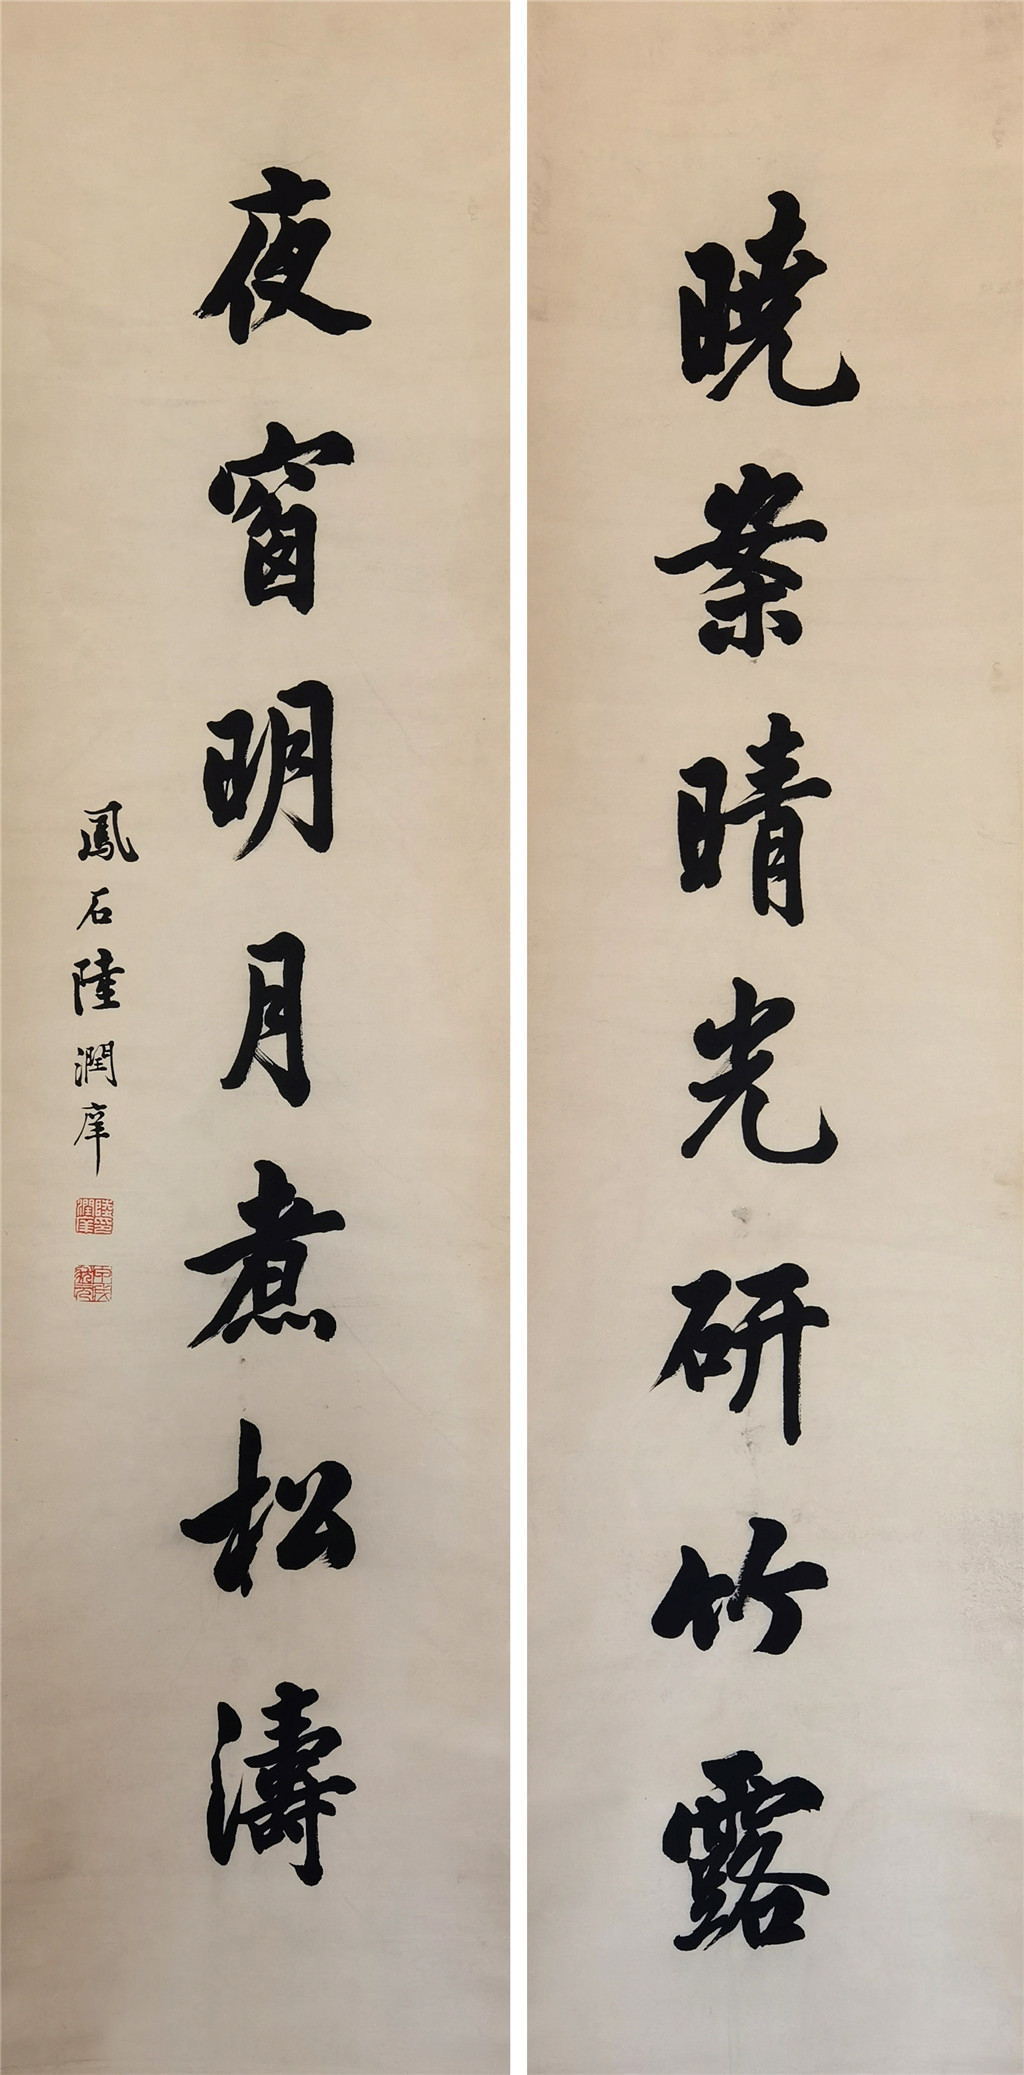 曉案晴光研竹露
夜窗明月煮松濤
鳳石陸潤庠